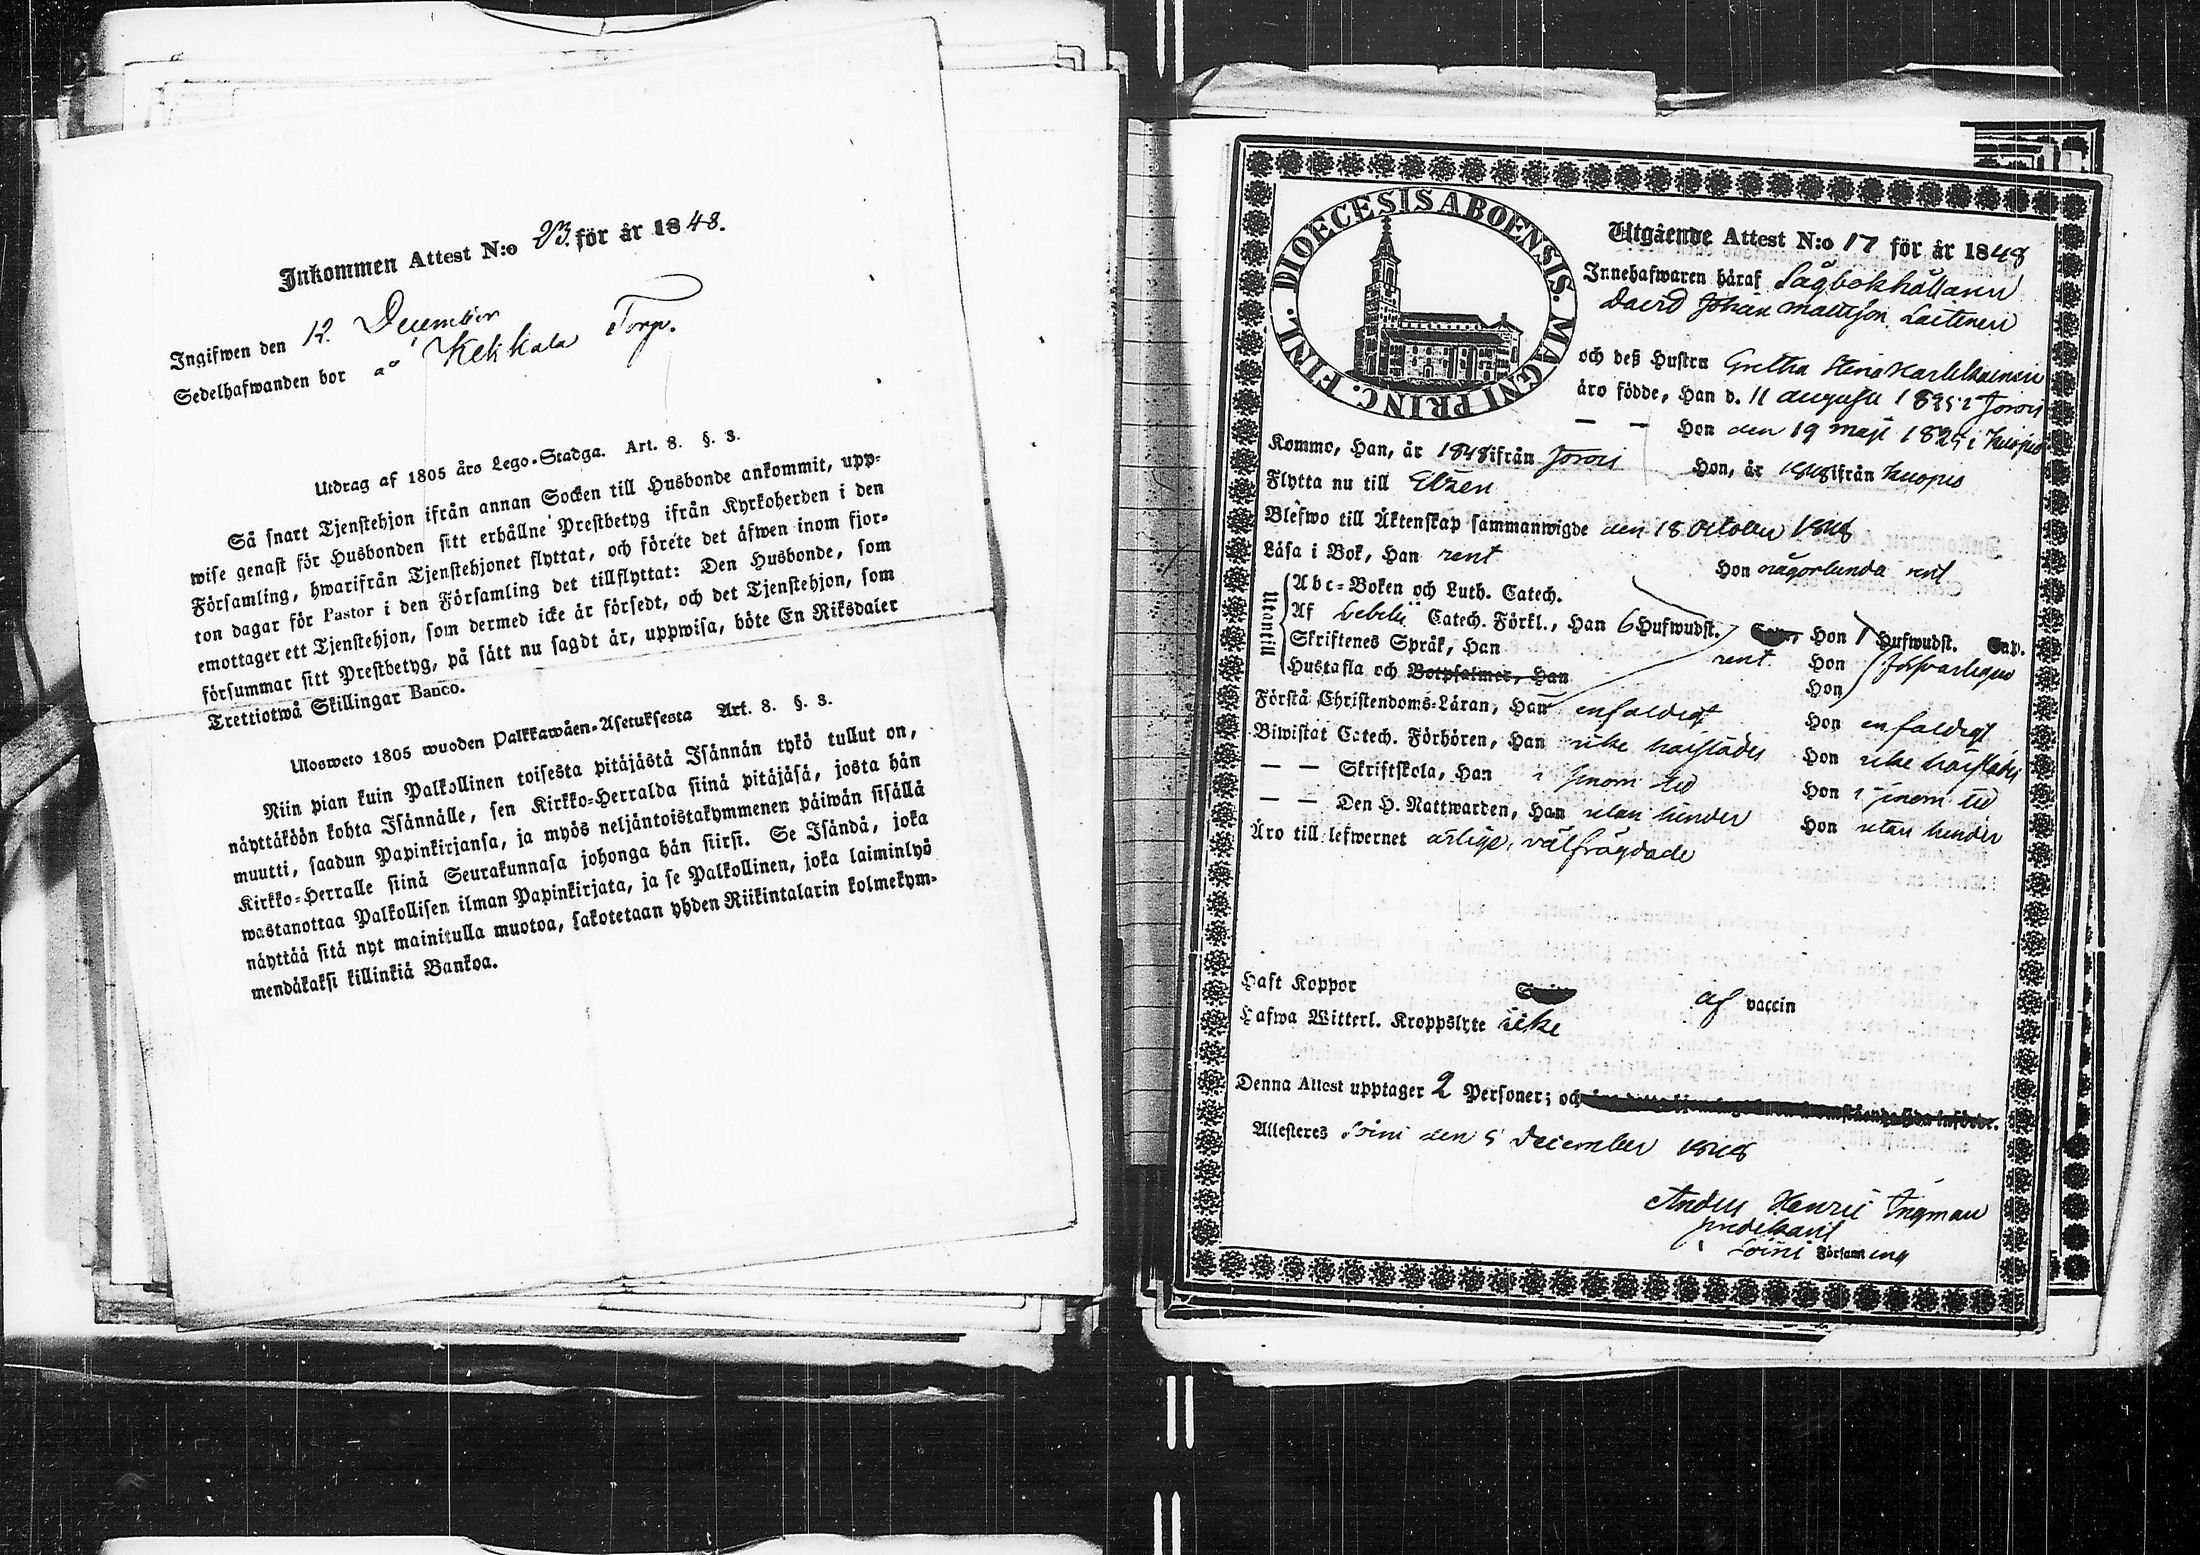 Inkommen Attest N:o 23. för år 1848.
Ingifwen den 12. December
Sedelhafwanden bor å Kekkala Torp.
Utdrag af 1805 års Lego-Stadga. Art. 8. §. 3.
Så snart Tjenstehjon ifrån annan Socken till Husbonde ankommit, upp-
wise genast för Husbonden sitt erhållne Prestbetyg ifrån Kyrkoherden i den
Församling, hwarifrån Tjenstehjonet flyttat, och förete det äfwen inom fjor-
ton dagar för Pastor i den Församling det tillflyttat: Den Husbonde, som
emottager ett Tjenstehjon, som dermed icke är försedt, och det Tjenstehjon, som
försummar sitt Prestbetyg, på sätt nu sagdt är, uppwisa, böte En Riksdaler
Trettiotwå Skillingar Banco.
Ulosweto 1805 wuoden Palkkawäen-Asetuksesta Art. 8. §. 3.
Niin pian kuin Palkollinen toisesta pitäjästä Isännän tykö tullut on,
näyttäköön kohta Isännälle, sen Kirkko-Herralda siinä pitäjäsä, josta hän
muutti, saadun Papinkirjansa, ja myös neljäntoistakymmenen päiwän sisällä
Kirkko-Herralle siinä Seurakunnasa johonga hän siirsi. Se Isändä, joka
wastanottaa Palkollisen ilman Papinkirjata, ja se Palkollinen, joka laiminlyö
näyttää sitä nyt mainitulla muotoa, sakotetaan yhden Riikintalarin kolmekym-
mendäkaksi killinkiä Bankoa.
DIOECESIS ABOENSIS. MAGNI PRINC. FINL.
Utgående Attest N:o 17 för år 1848
Innehafwaren häraf Sågbokhållaren
David Johan Mattsson Laitinen
och deß Hustru Gretha Stina Karkkainen
äro födde, Han d. 11 augusti 1825 i Jorois
— — Hon den 19 maji 1825 i Kuopio
Kommo, Han, år 1848 ifrån Jorois Hon, år 1848 ifrån Kuopio
Flytta nu till
Blefwo till Äktenskap sammanwigde den 18 October 1848
Läsa i Bok, Han rent Hon någorlunda rent
Utantill
Abc-Boken och Luth. Catech.
Af Catech. Förkl., Han 6 Hufwudst. Hon 1 Hufwudst. Cap.
Skriftenes Språk, Han rent Hon försvarligen
Hustafla och Botpsalmer, Han Hon
Förstå Christendoms-Läran, Han enfaldigt Hon enfaldigt
Biwistat Catech. Förhören, Han icke Hon icke
— — Skriftskola, Han i sinom tid Hon i sinom tid
— — Den H. Nattwarden, Han utan hinder Hon utan hinder
Äro till lefwernet ärlige, välfrägdade
Haft Koppor af vaccin
Hafwa Witterl. Kroppslyte icke
Denna Attest upptager 2 Personer; och
Attesteres Soini den 5 December 1848
Anders Henric Ingman
predikant
i Soini Församling